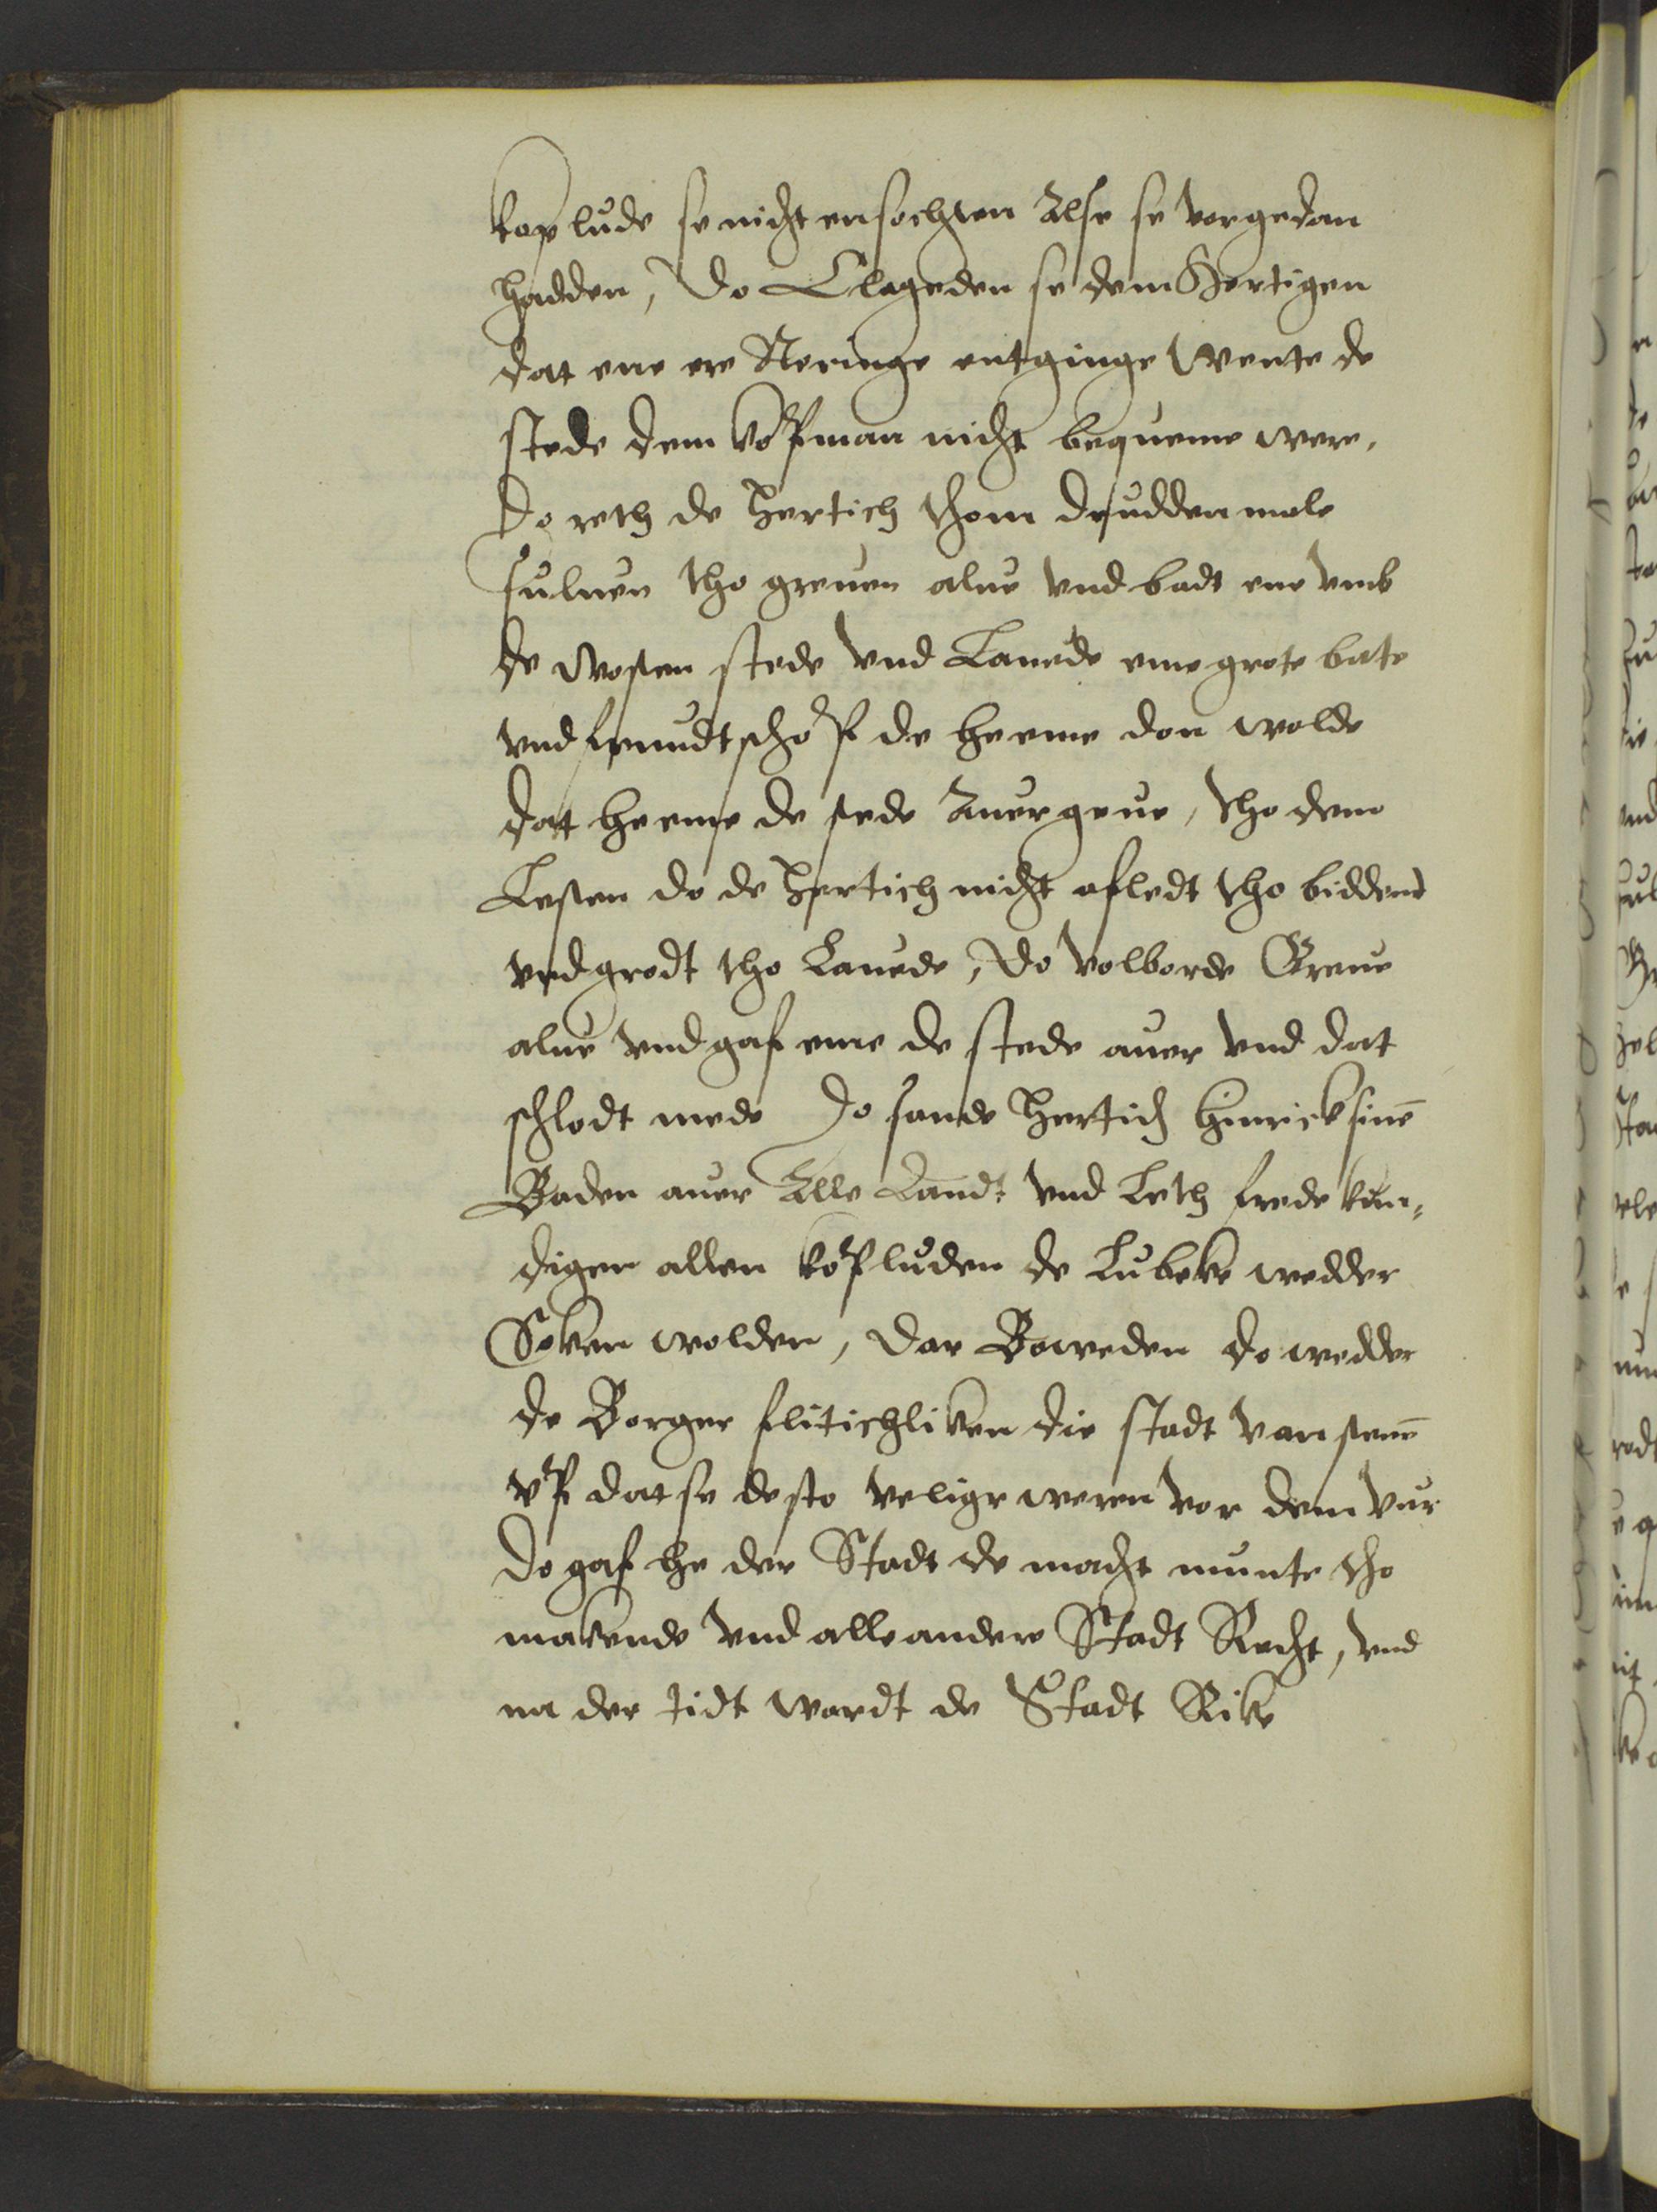 koplude se nicht ensochten Alse se vorgedan
hadden, Do Clageden se dem Hertigen
dat ene ere Neringe entginge wente de
stede dem kopman nicht bequeme were,
Do reth de Hertich thom drudden male
suluen tho greuen alue vnd badt ene vmb
de wosten stede vnd Lauede eme grote bate
vnd frundtschop de he eme don wolde
dat he eme de stede Auergeue, tho dem
Lesten do de Hertich nicht afledt tho bidden
vnd grodt tho Lauede, Do volborde Greue
alue vnd gaf eme de stede auer vnd dat
schlodt mede Do sande Hertich Hinrick sine
Baden auer Alle Landt vnd Leth frede kun-
digen allen kopluden de Lubeke wedder
Soken wolden, dar Boweden do wedder
de Borger flitichliken die stadt van stene
vp dat se desto veliger weren vor dem vur
Do gaf he der Stadt de macht munte tho
makende vnd alle andere Stadt Recht, vnd
na der tidt wardt de Stadt Rike